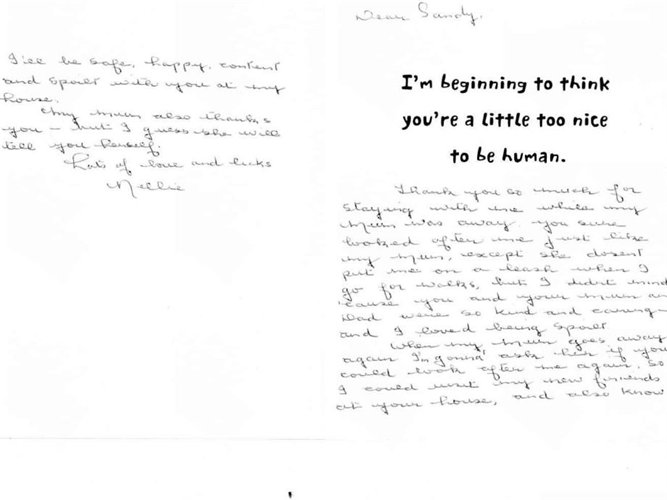 Dear Sandy,
I'm beginning to think
you're a little too nice
to be human.
Thank you so much for
staying with me while my
Mum was away. You sure
looked after me just like
my Mum, except she dosent
put me on a leash when I
go for walks, but I didn't mind
'cause you and your Mum an
Dad were so kind and caring -
and I loved being spoilt
When my Mum goes away
again I'm gonna' ask her if you
could look after me again. So
I could visit my new friends
at your house, and also know
I'll be safe, happy, content
and spoilt with you at my
house.
My Mum also thanks
you - but I guess she will
tell you herself.
Lots of love and licks
Nellie